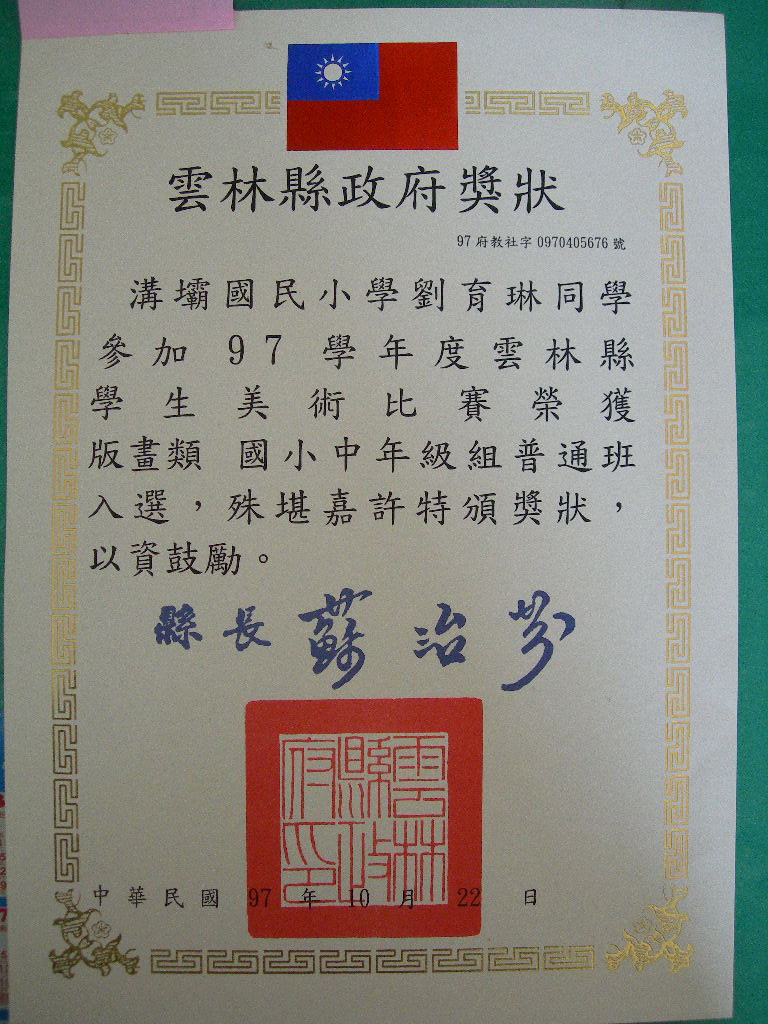 雲林縣政府獎狀
97府教社字0970405676號
溝壩國民小學劉育琳同學
參加97學年度雲林縣
學生美術比賽榮獲
版畫類 國小中年級組普通班
入選，殊堪嘉許特頒獎狀，
以資鼓勵。
縣長 蘇治芬
雲林縣政府印
中華民國 97 年 10 月 22 日